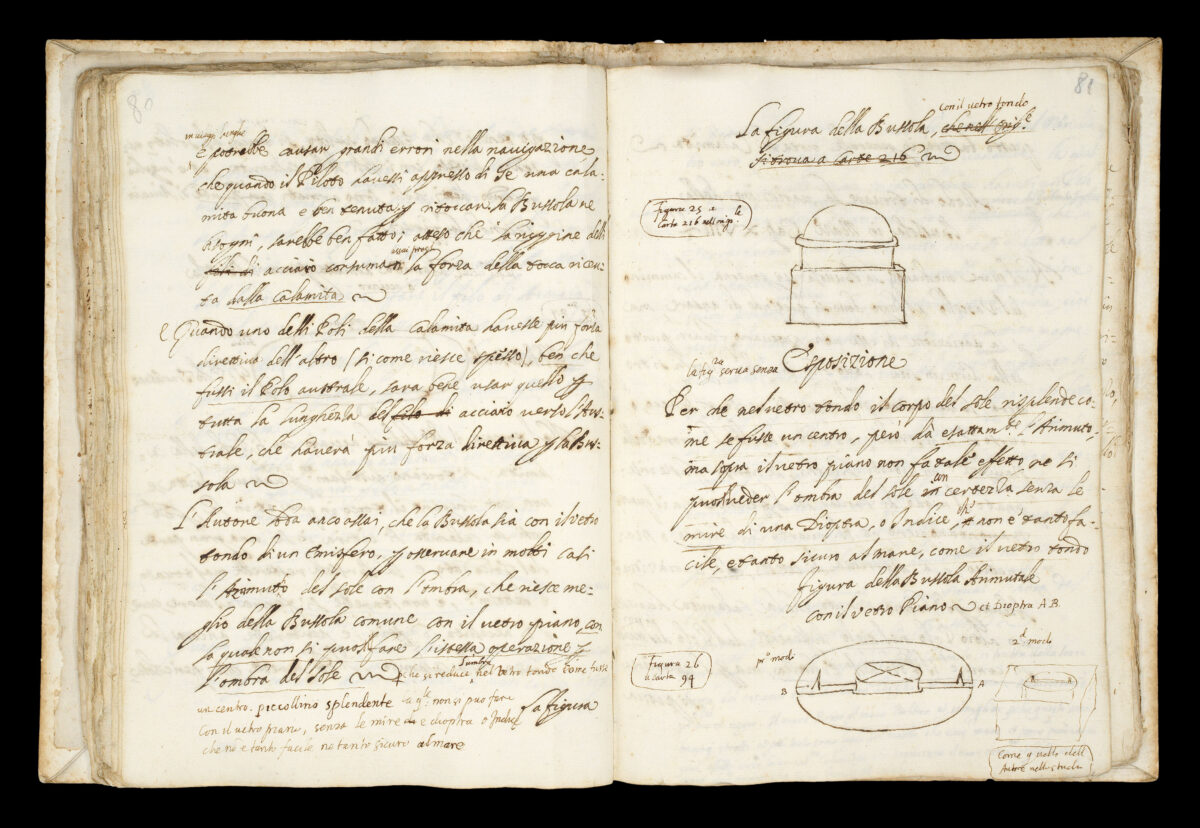 80
in viaggi lunghi
e potrebbe causar grandi errori nella navigazione
che quando il Piloto havessi appresso di se una cala-
mita buona e ben tenuta, p ritoccare la Bussola ne
bisogni, sarebbe ben fatto; atteso che la ruggine delli
acciaro consuma la forza della tocca ricevu-
ta dalla Calamita
Quando uno delli Poli della Calamita havesse piu forza
direttiva dell'altro (si come riesce spesso), ben che
fussi il Polo australe, sara bene usar quello p
tutta la lunghezza del filo di acciaro verso l'Aus-
trale, che haverà piu forza direttiva p la Bus-
sola
L'Autore loda anco assai, che la Bussola sia con il vetro
tondo di un Emisfero, p osservare in molti casi
l'Azimuto del sole con l'ombra, che riesce me-
glio della Bussola comune con il vetro piano, con
la quale non si puol fare l'istessa operazione p
l'ombra del sole
che si reduce l'umbra nel vetro tondo come fusse
un centro piccollino splendente la qle non si puo fare
con il vetro piano, senza le mire e dioptra o Indice
che no è tanto facile ne tanto sicuro al mare
La figura
81
con il vetro tondo
La figura della Bussola,
si trova a Carte 216
Figura 25 a
Carta 216 nell orig.le
la fig.ra serva senza Esposizione
Per che nel vetro tondo il corpo del sole risplende co-
me se fusse un centro, però dà esattam.te l'Azimuto,
ma sopra il vetro piano non fa tale effetto, ne si
puol veder l'ombra del sole con certezza senza le
mire di una Dioptra, o Indice, che non è tanto fa-
cile, e tanto sicuro al mare, come il vetro tondo
figura della Bussola Azimutale
con il vetro Piano et Dioptra A.B.
Figura 26
a carta 94
pº modo
2º modo
B
A
Come quello dell
Autore nell studio